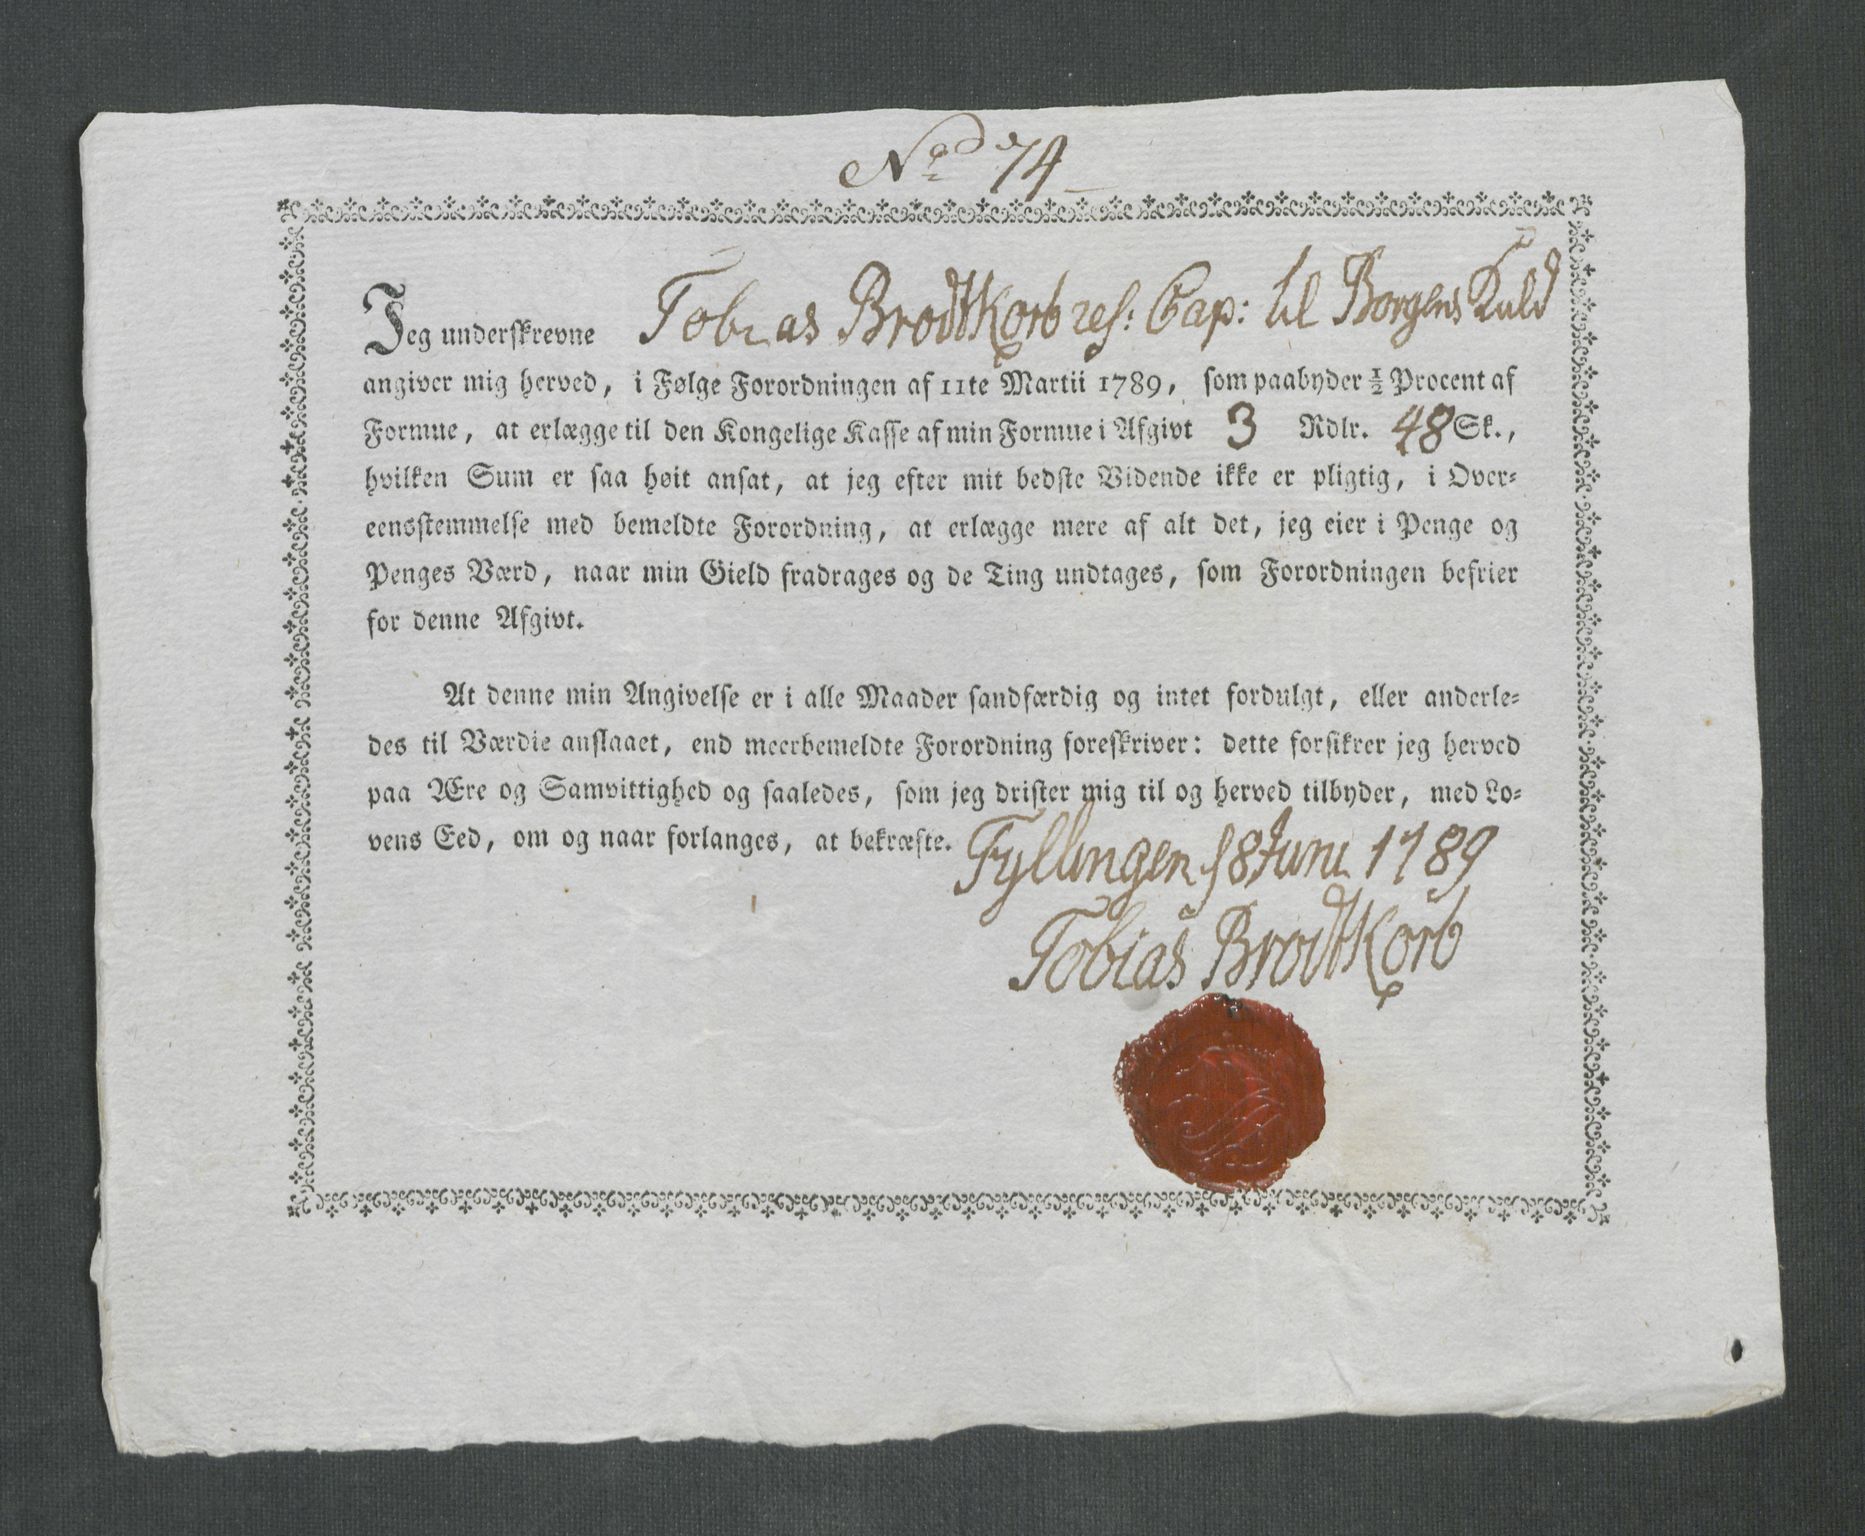 No 74
Jeg underskrevne Tobias BrodtKorb res: Cap: til Borgens Kald
angiver mig herved, i Følge Forordningen af 11te Martii 1789, som paabyder ½ Procent af
Formue, at erlægge til den Kongelige Kasse af min Formue i Afgivt 3 Rdlr. 48 Sk.,
hvilken Sum er saa høit ansat, at jeg efter mit bedste Vidende ikke er pligtig, i Over-
eensstemmelse med bemeldte Forordning, at erlægge mere af alt det, jeg eier i Penge og
Penges Værd, naar min Gield fradrages og de Ting undtages, som Forordningen befrier
for denne Afgivt.
At denne min Angivelse er i alle Maader sandfærdig og intet fordulgt, eller anderle-
des til Værdie anslaaet, end meerbemeldte Forordning foreskriver: dette forsikrer jeg herved
paa Ære og Samvittighed og saaledes, som jeg drister mig til og herved tilbyder, med Lo-
vens Eed, om og naar forlanges, at bekræfte.
Fyllingen 18 Juni 1789
Tobias BrodtKorb